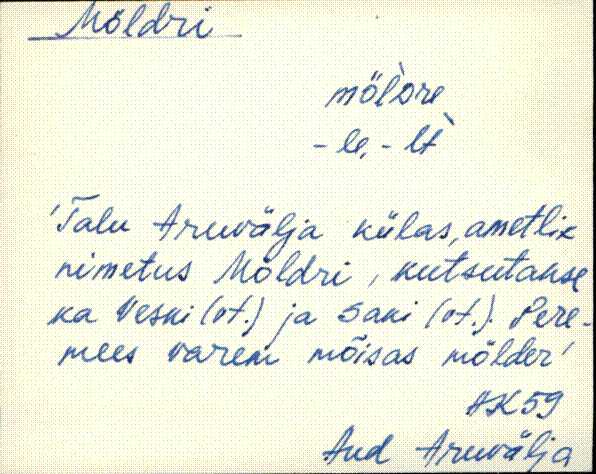 Möldri
möl̀dre
-le, -lt̀
'Talu Aruvälja külas, ametlik
nimetus Möldri, kutsutakse
ka Veski (vt.) ja Saki (vt.). Pere-
mees varem mõisas mölder'
AK 59
Aud Aruvälja